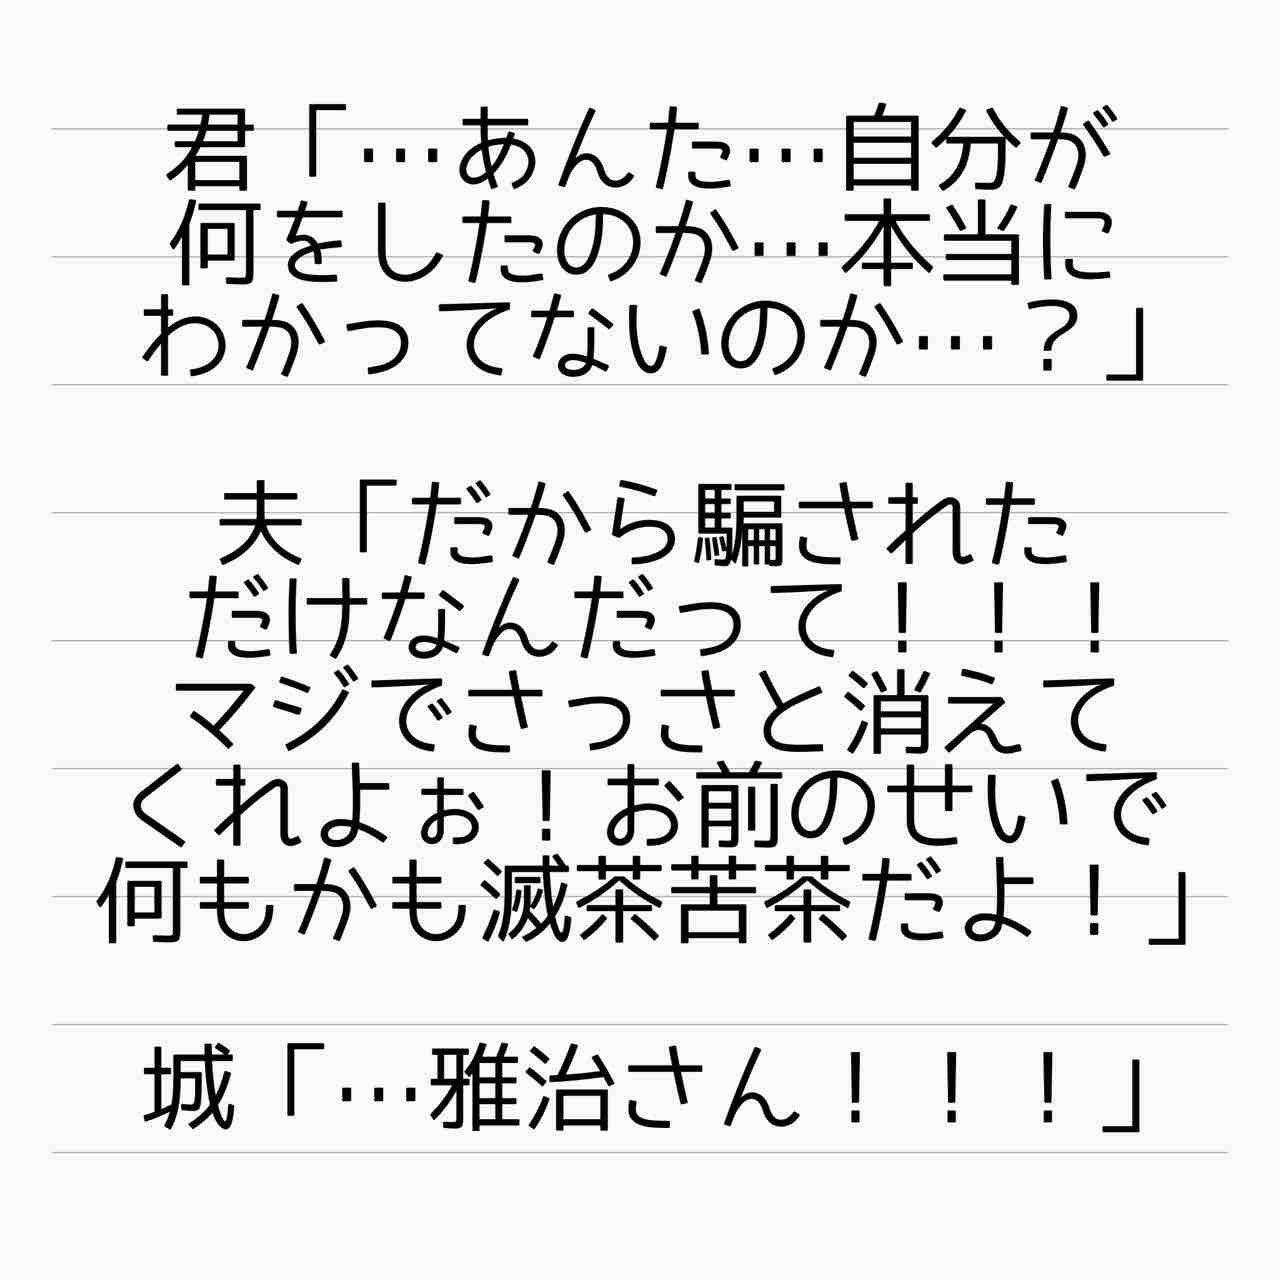 君「…あんた…自分が
何をしたのか…本当に
わかってないのか…？」
夫「だから騙された
だけなんだって！！！
マジでさっさと消えて
くれよぉ！お前のせいで
何もかも滅茶苦茶だよ！」
城「…雅治さん！！！」